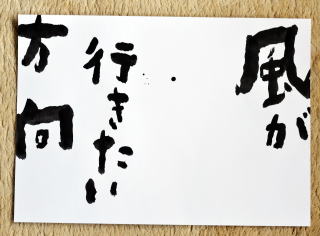 風が
行きたい
方向